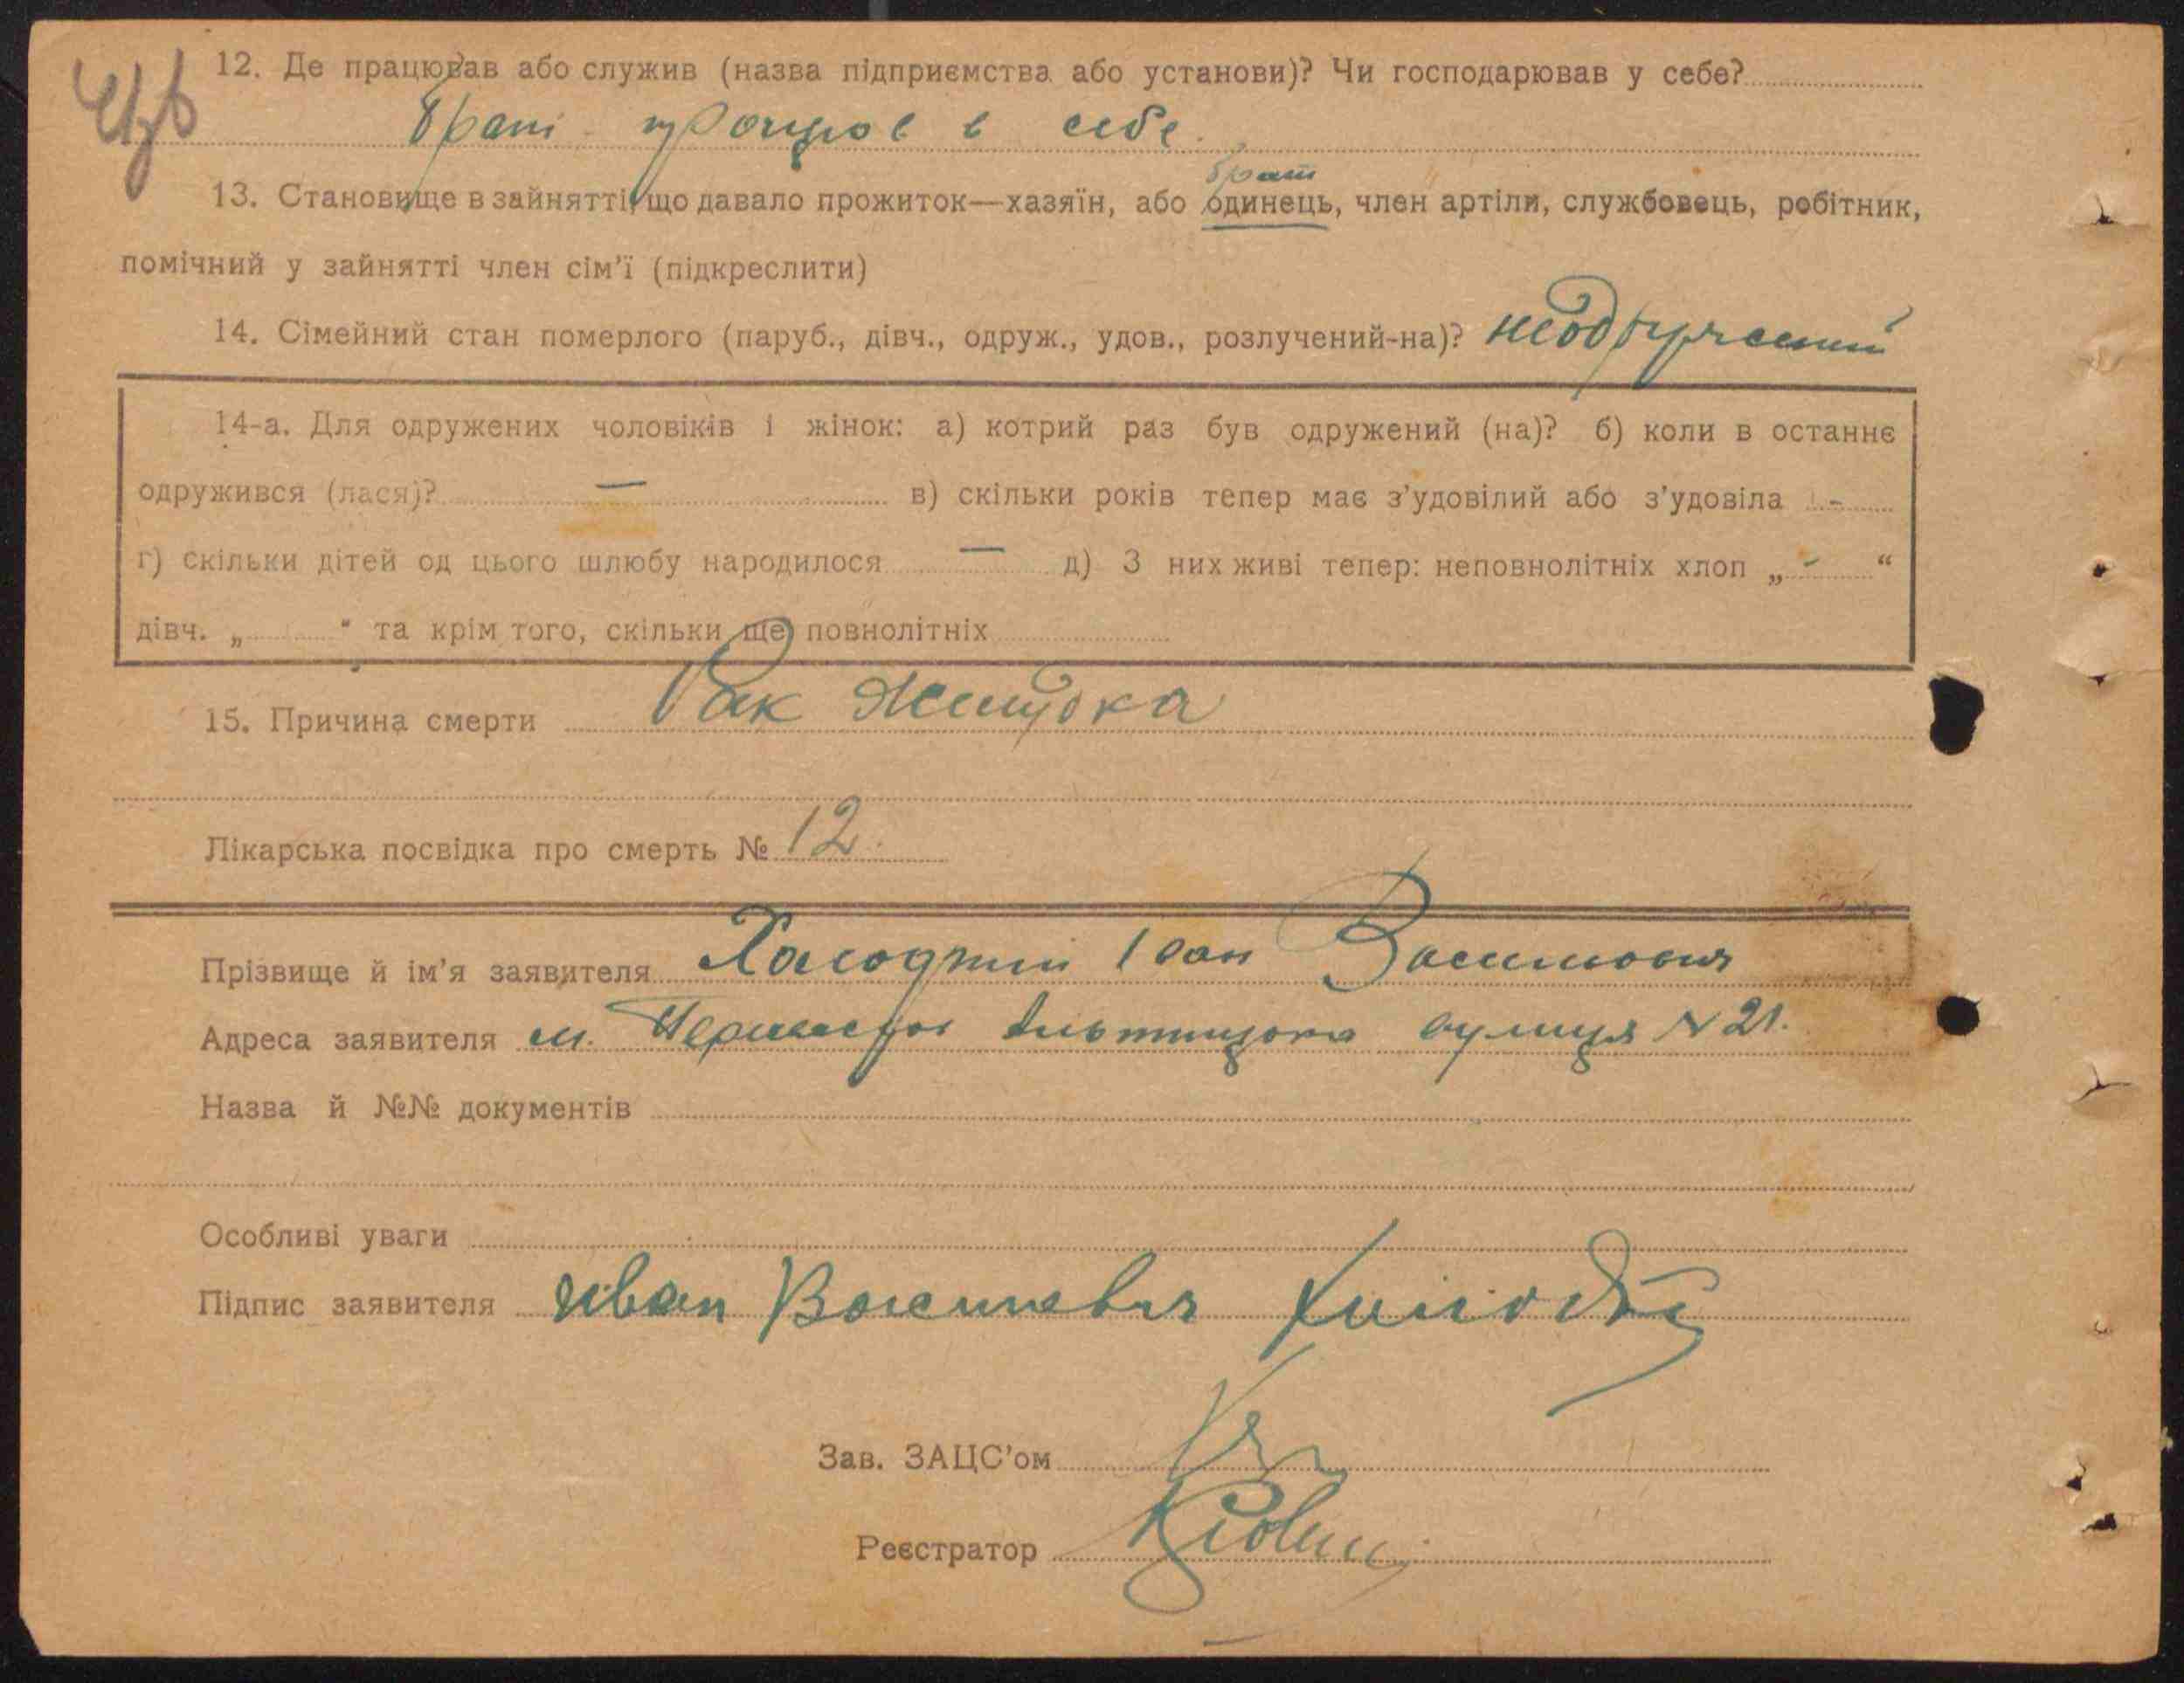 12. Де працював або служив (назва підприємства або установи)? Чи господарював у себе?
брат працював в себе
брат
13. Становище в зайнятті, що давало прожиток—хазяїн, або одинець, член артіли, службовець, робітник,
помічний у зайнятті член сім'ї (підкреслити)
14. Сімейний стан померлого (паруб., дівч., одруж., удов., розлучений-на)? неодружений
14-а. Для одружених чоловіків і жінок: а) котрий раз був одружений (на)? б) коли в останнє
одружився (лася)? — в) скільки років тепер має з'удовілий або з'удовіла -
г) скільки дітей од цього шлюбу народилося — д) З них живі тепер: неповнолітніх хлоп „ - “
дівч. „ “ та крім того, скільки ще повнолітніх
15. Причина смерти Рак Желудка
Лікарська посвідка про смерть № 12.
Прізвище й ім'я заявителя Іван Васильович
Адреса заявителя м. вулиця № 21.
Назва й №№ документів
Особливі уваги
Підпис заявителя Иван Васильевич
Зав. ЗАЦС'ом
Реєстратор